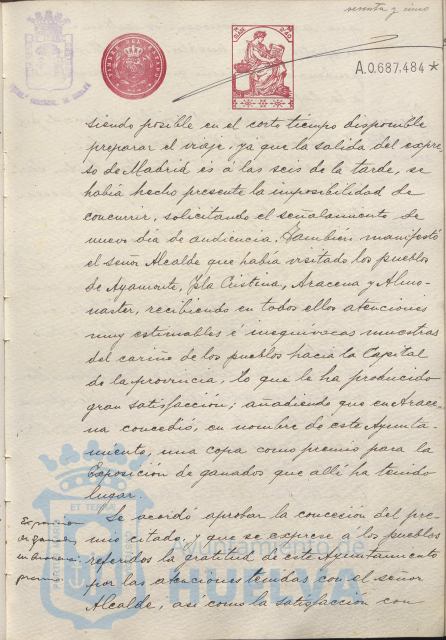 sesenta y uno
TIMBRE DEL ESTADO
A.0.687,484*
siendo posible en el corto tiempo disponible
preparar el viaje, ya que la salida del expre-
so de Madrid és á las seis de la tarde, se
había hecho presente la imposibilidad de
concurrir, solicitando el señalamiento de
nuevo día de audiencia. También manifestó
el señor Alcalde que había visitado los pueblos
de Ayamonte, Isla Cristina, Aracena y Almo-
naster, recibiendo en todos ellos atenciones
muy estimables é inequívocas muestras
del cariño de los pueblos hacia la Capital
de la provincia, lo que le ha producido
gran satisfacción; añadiendo que en Arace-
na concedió, en nombre de este Ayunta-
miento, una copa como premio para la
Exposición de ganados que allí ha tenido
lugar.
Se acordó aprobar la concesión del pre-
mio citado, y que se exprese á los pueblos
referidos la gratitud de este Ayuntamiento
por las atenciones tenidas con el señor
Alcalde, así como la satisfacción con
de ganados
en Aracena
premio.
ET TERRA
Ayuntamiento de
HUELVA